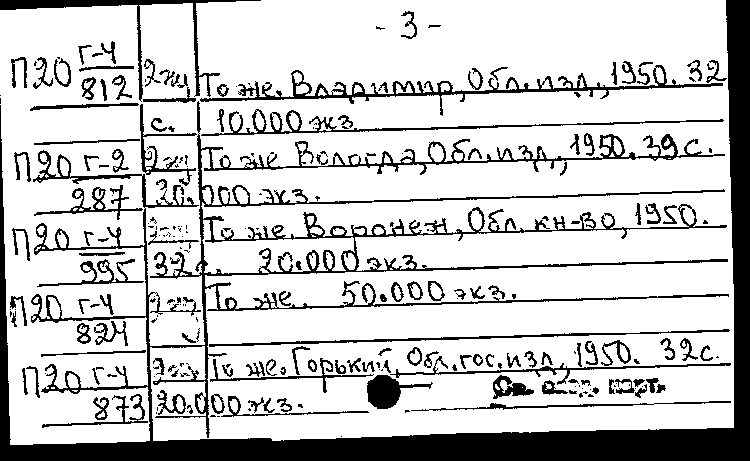 - 3 -
П20 Г-4/812 2жц То же. Владимир, Обл. изд, 1950. 32
с. 10.000 экз.
П20 Г-2/287 2жц То же Вологда, Обл. изд., 1950. 39 с.
20.000 экз.
П20 Г-4/995 То же. Воронеж, Обл. кн-во, 1950.
32 с. 20.000 экз.
П20 Г-4/824 То же. 50.000 экз.
П20 Г-4/873 То же. Горький, Обл. гос. изд., 1950. 32 с.
20.000 экз. См. след. карт.